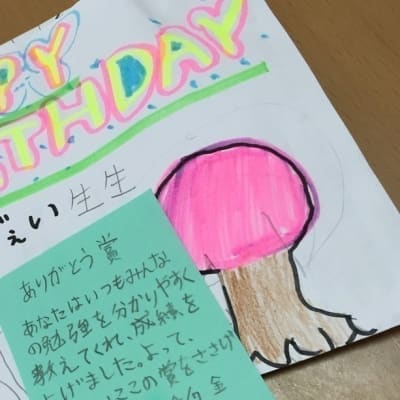 PPY
RTHDAY
ぜぇい生生
ありがとう賞
あなたはいつもみんな
の勉強を分かりやすく
教えてくれ、成績を
上げました。よって、
ここの賞をささげ
金